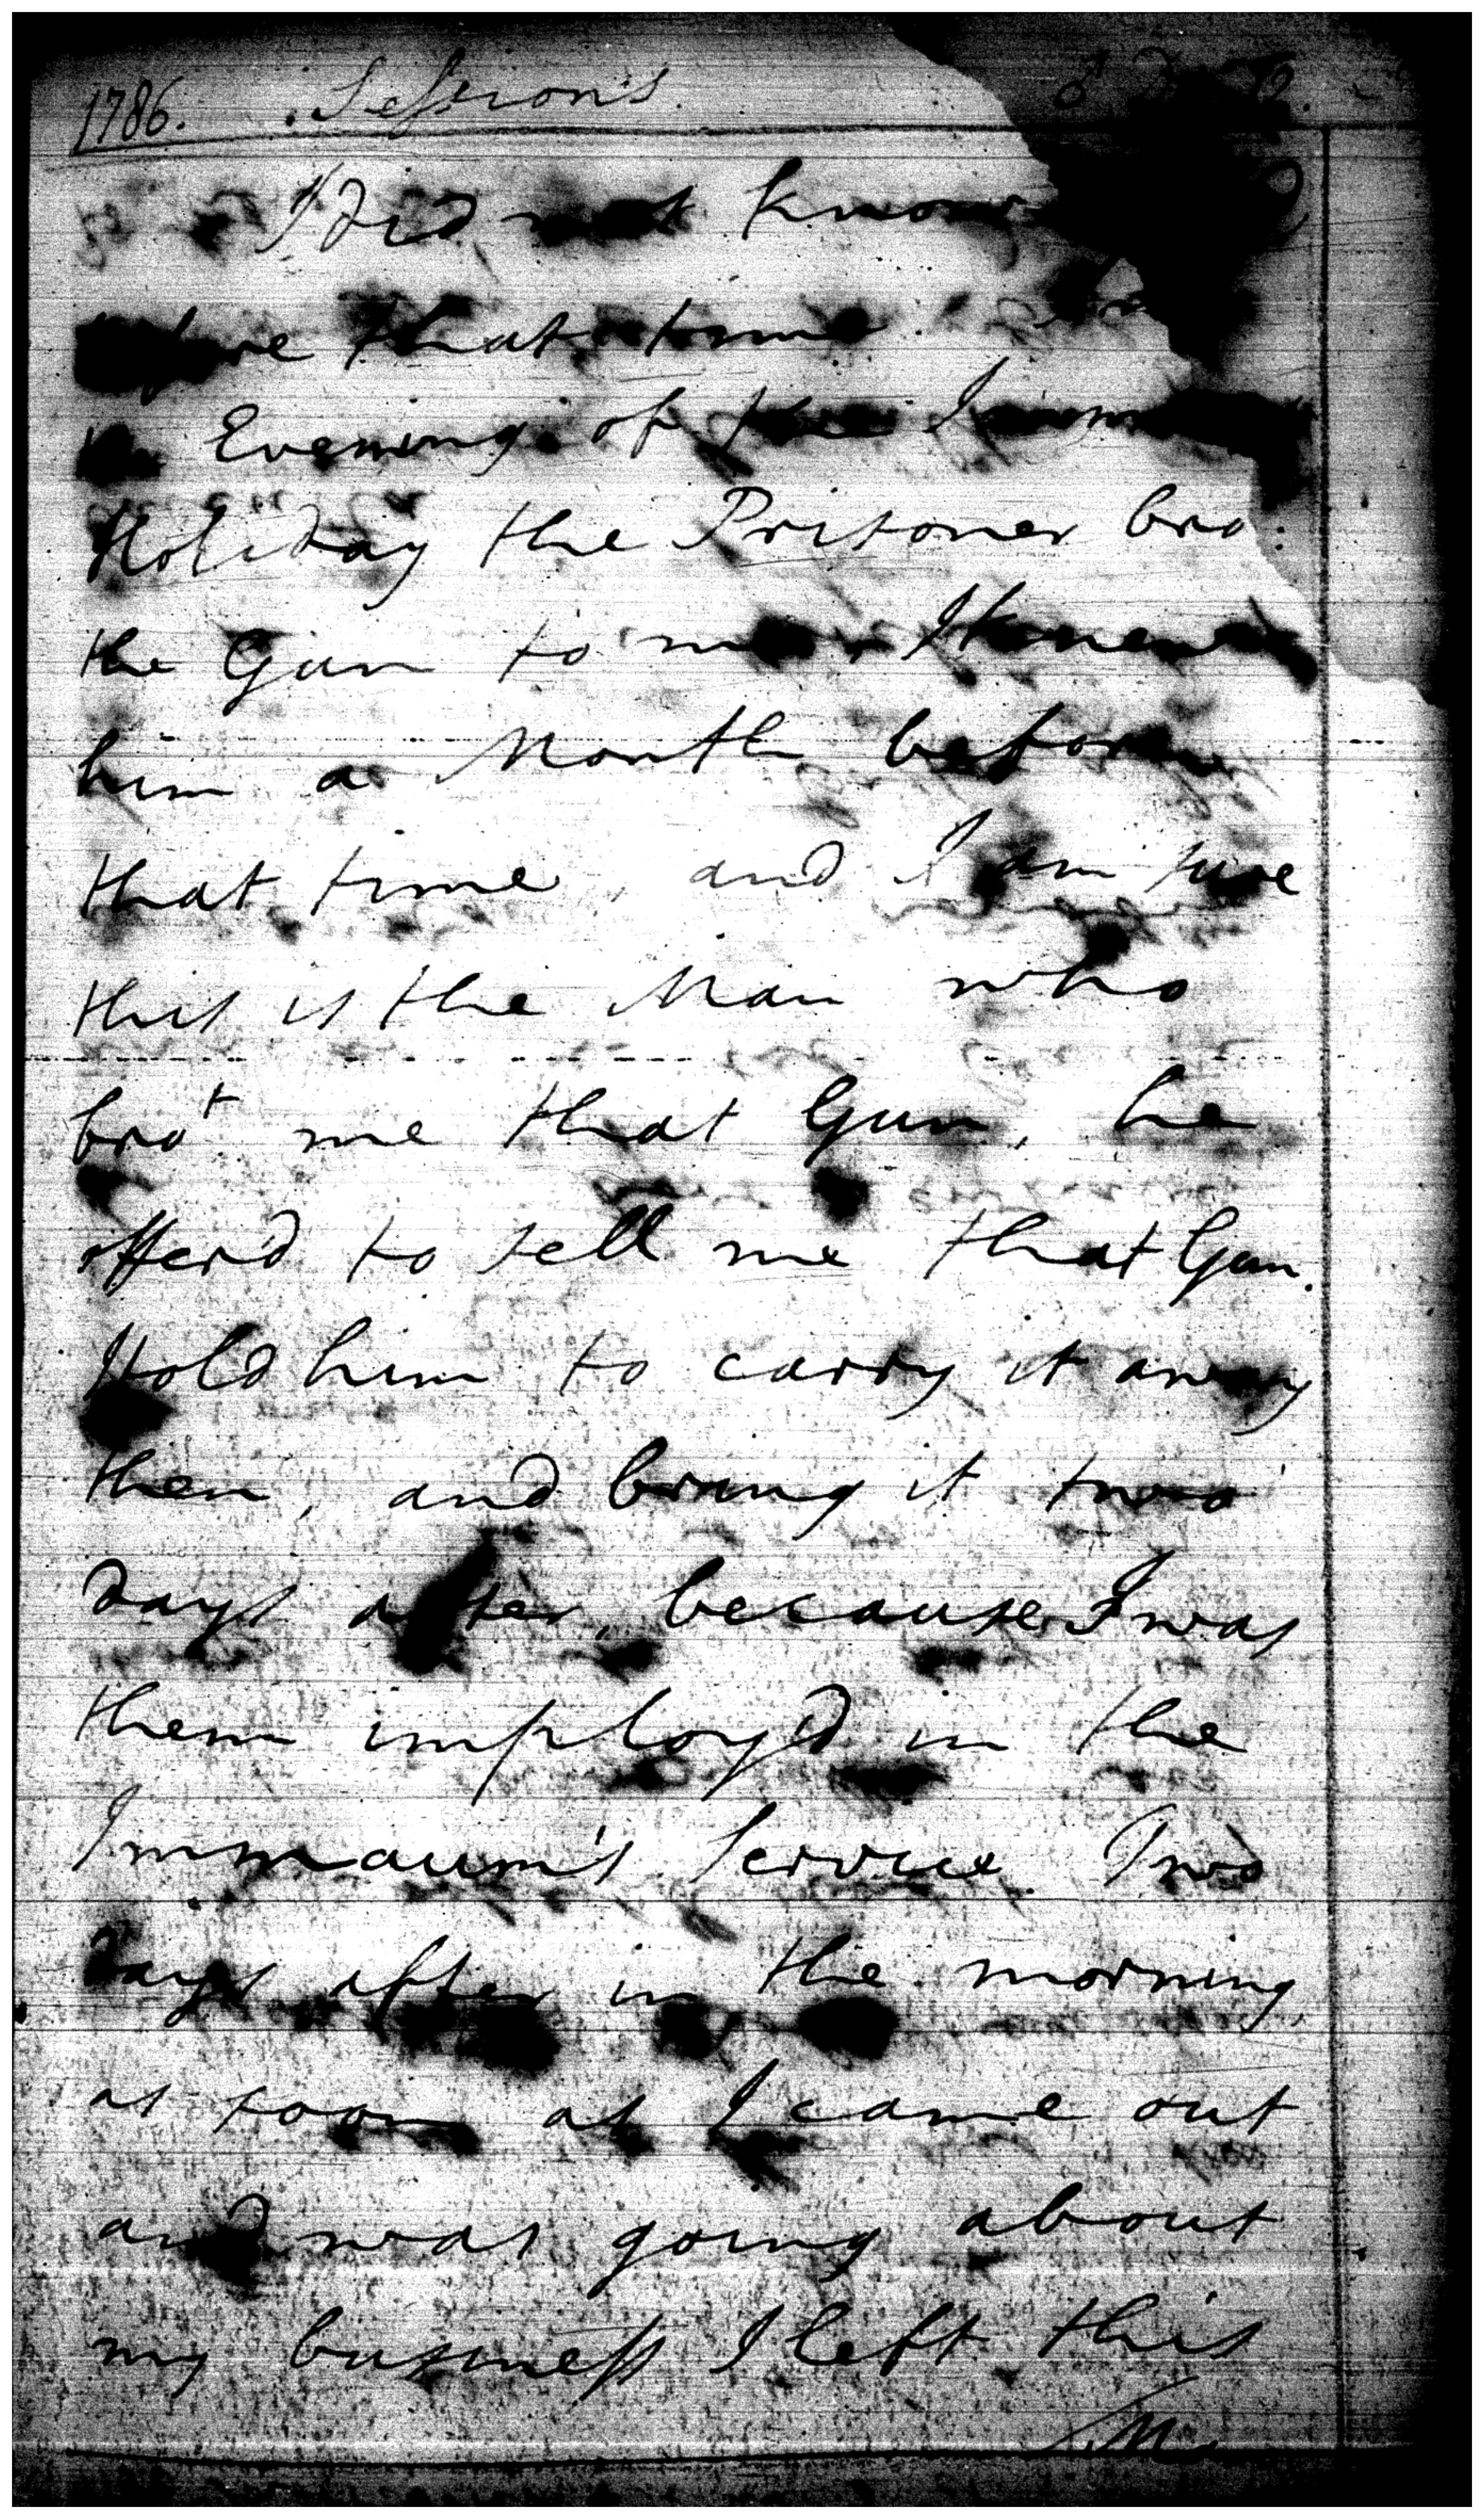 1786. Sessions
I did not know
before that time
Evening of the
Holiday the Prisoner bro:
the Gun to me. I knew
him a Month before
that time, and I am sure
this is the Man who
bro.t me that Gun, he
offer'd to sell me that Gun.
I told him to carry it away
then, and bring it two
days after, because I was
then imploy'd in the
Immaum's Service. Two
days after in the morning,
as soon as I came out
and was going about
my business I left this